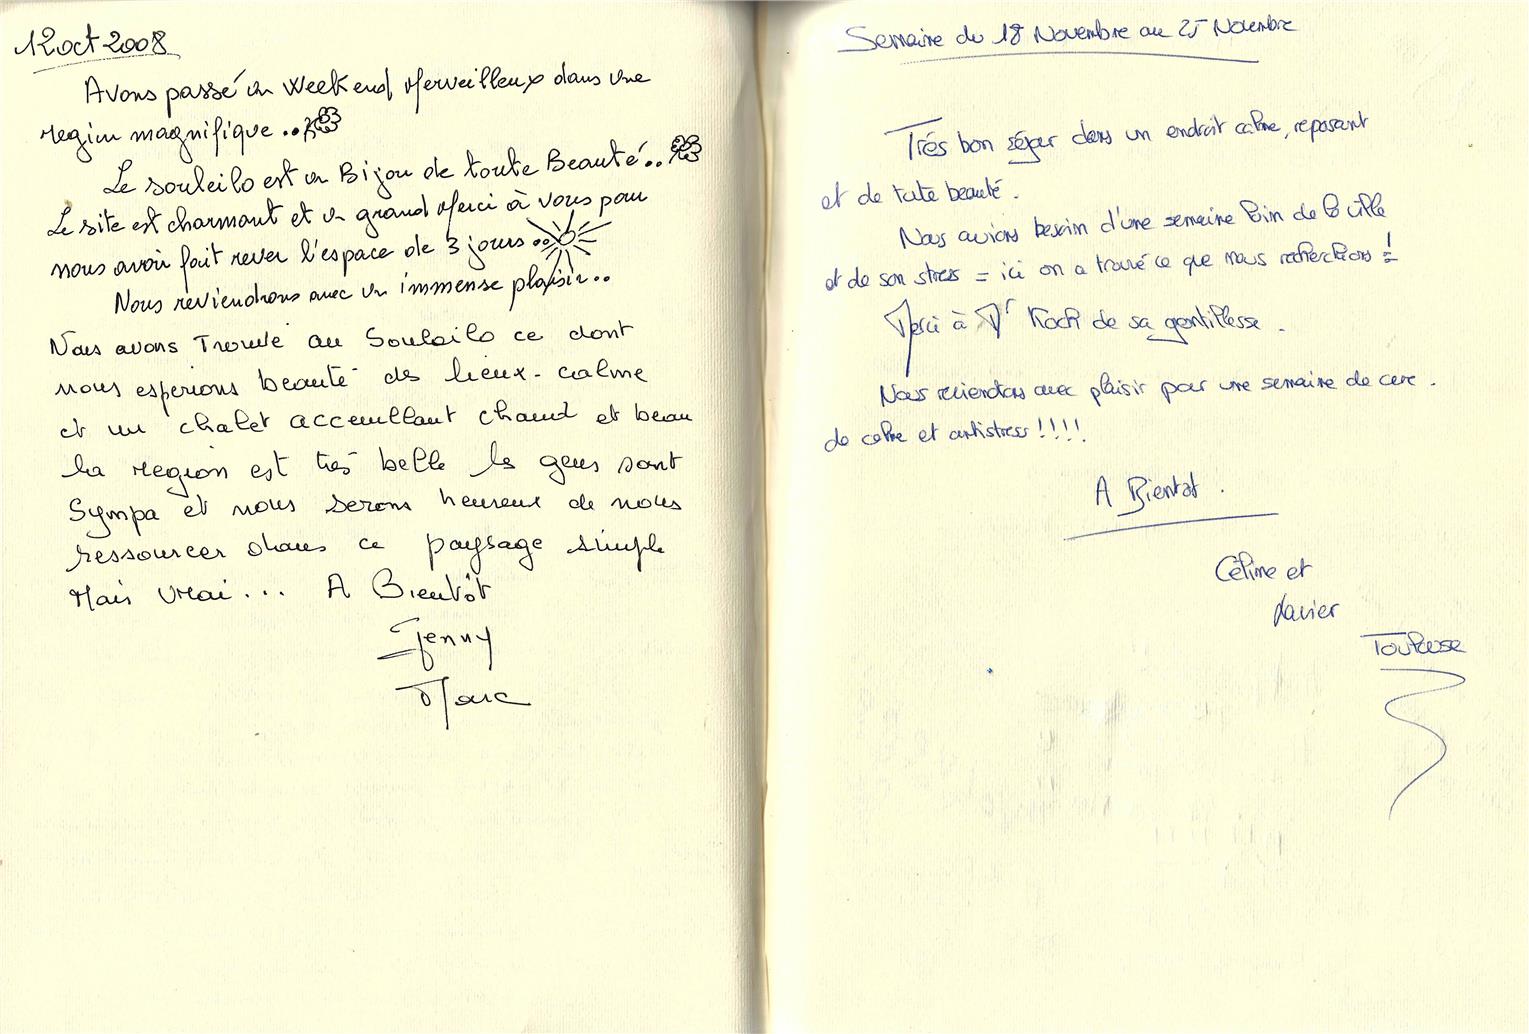 12 oct 2008
Avons passé un weekend merveilleux dans une
region magnifique ...
Le souleilo est un Bijou de toute Beauté...
Le site est charmant et un grand merci à vous pour
nous avoir fait rever l'espace de 3 jours...
Nous reviendrons avec un immense plaisir..
Nous avons Trouvé au Souleilo ce dont
nous esperions beauté des lieux - calme
et un chalet acceuillant chaud et beau
La region est très belle les gens sont
Sympa et nous serons heureux de nous
ressourcer dans ce paysage simple
Mais vrai... A Bientôt
Jenny
Marc
Semaine du 18 Novembre au 25 Novembre
Trés bon séjour dans un endroit calme, reposant
et de toute beauté.
Nous avions besoin d'une semaine loin de la ville
et de son stress = ici on a trouvé ce que nous recherchions !
Merci à Mr Koch de sa gentillesse.
Nous reviendrons avec plaisir pour une semaine de cure.
de calme et antistress !!!!
A Bientot.
Céline et
Xavier
Toulouse